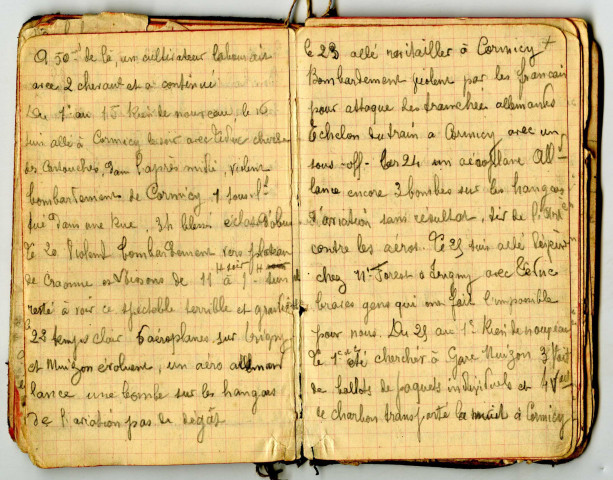 A 50m de là, un cultivateur labourait
avec 2 chevaux et a continué
Du 1er au 15 Rien de nouveau, le
suis allé à Cormicy le soir avec Leduc chercher
des cartouches, dans l'après midi, violent
bombardement de Cormicy 1 sous
tué dans une rue, 3h blessé éclats d'obus
le 20 Violent bombardement vers plateau
de Craonne et Soissons de 11 4 soir à
resté à voir ce spectacle terrible et grandiose
Le 22 temps clair 6 aéroplanes sur Prigny
et Muizon évoluent, un aéro allemand
lance une bombe sur les hangars
de l'aviation pas de dégâts
le 23 allé ravitailler à Cormicy
Bombardement violent par les français
pour attaque des tranchées allemandes
Echelon du train à Cormicy avec un
sous-off - Le 24 un aéroplane All
lance encore 3 bombes sur les hangars
d'aviation sans résultat, tir de l'
contre les aéros. Le 25 suis allé
chez Mr Forest à Jugny avec Leduc
braves gens qui ont fait l'impossible
pour nous. Du 25 au 1er Rien de nouveau
Le 1er été chercher à Gare Muizon 3
de ballots de paquets individuels et 4
de charbon transporté la nuit à Cormicy